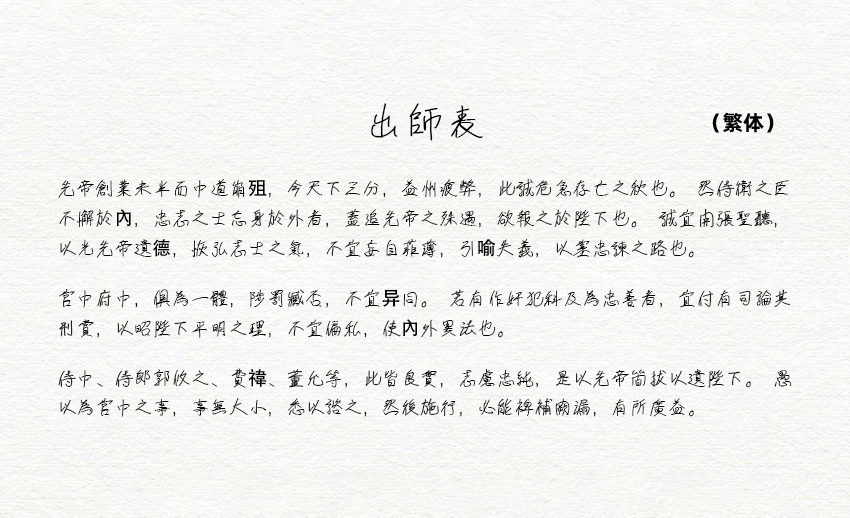 出師表
（繁体）
先帝創業未半而中道崩殂，今天下三分，益州疲弊，此誠危急存亡之秋也。 然侍衛之臣
不懈於內，忠志之士忘身於外者，蓋追先帝之殊遇，欲報之於陛下也。 誠宜開張聖聽，
以光先帝遺德，恢弘志士之氣，不宜妄自菲薄，引喻失義，以塞忠諫之路也。
宮中府中，俱為一體，陟罰臧否，不宜异同。 若有作奸犯科及為忠善者，宜付有司論其
刑賞，以昭陛下平明之理，不宜偏私，使內外異法也。
侍中、侍郎郭攸之、費禕、董允等，此皆良實，志慮忠純，是以先帝簡拔以遺陛下。 愚
以為宮中之事，事無大小，悉以諮之，然後施行，必能裨補闕漏，有所廣益。